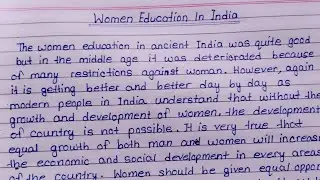 Women Education In India
The women education in ancient India was quite good
but in the middle age it was deteriorated because
of many restrictions against woman. However, again
it is getting better and better day by day as
modern people in India understand that without the
growth and development of women. the development
of country is not possible. It is very true that
equal growth of both man and women will increase
the economic and social development in every areas
of the country. Women should be given equal oppor